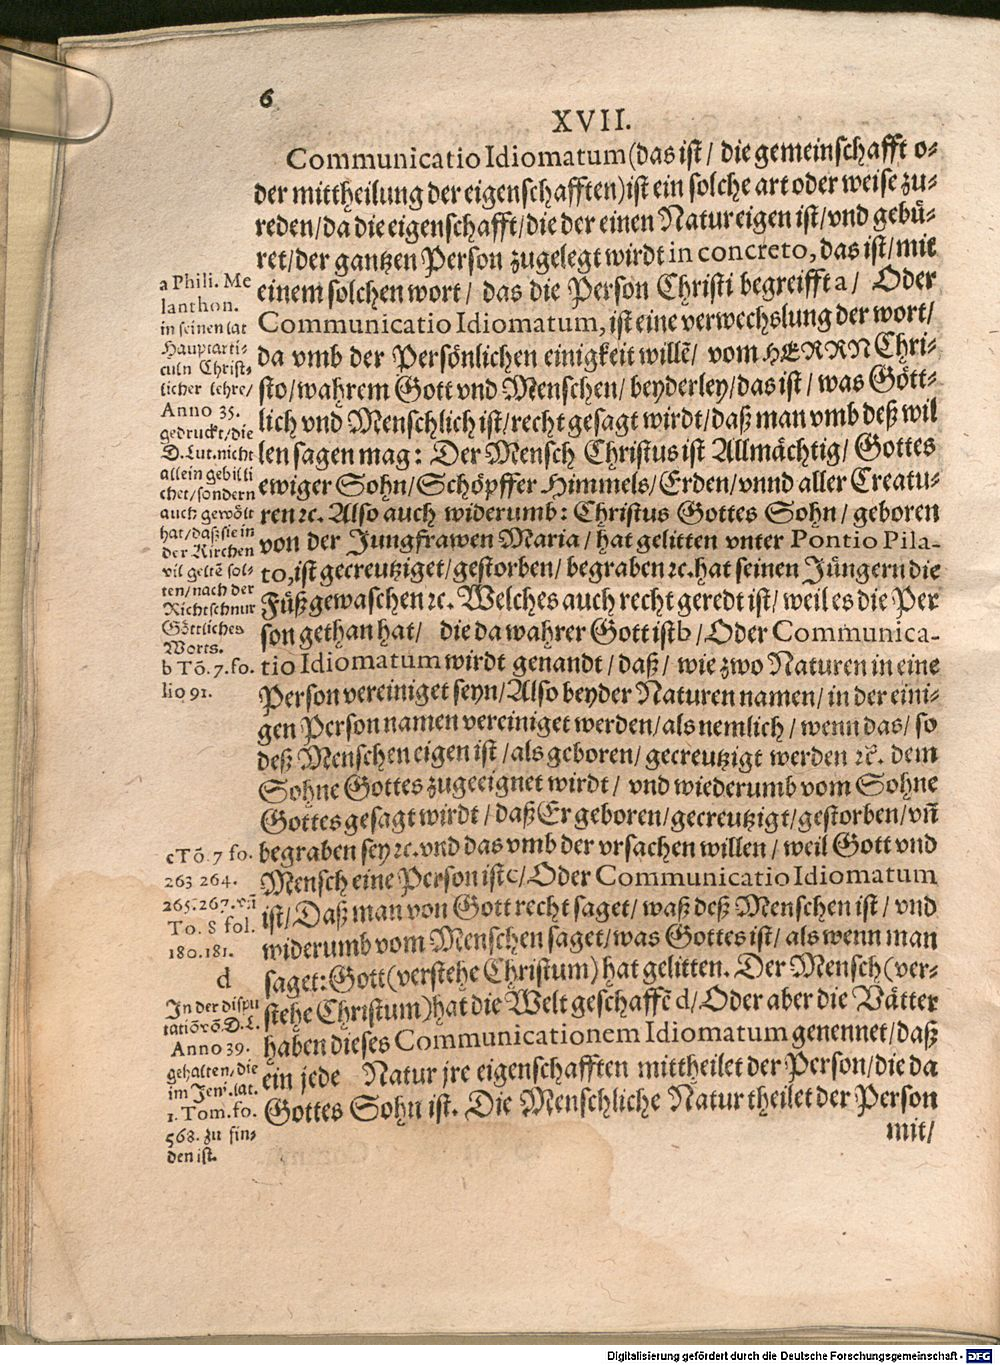 6
XVII.
Communicatio Idiomatum (das ist / die gemeinschafft o-
der mittheilung der eigenschafften) ist ein solche art oder weise zu-
reden / da die eigenschafft / die der einen Natur eigen ist / vnd gebü-
ret / der gantzen Person zugelegt wirdt in concreto, das ist / mit
einem solchen wort / das die Person Christi begreifft a / Oder
Communicatio Idiomatum, ist eine verwechslung der wort /
da vmb der Persönlichen einigkeit willē / vom HERRN Chri-
sto / wahrem Gott vnd Menschen / beyderley / das ist / was Gött-
lich vnd Menschlich ist / recht gesagt wirdt / daß man vmb deß wil
len sagen mag: Der Mensch Christus ist Allmächtig / Gottes
ewiger Sohn / Schöpffer Himmels / Erden / vnnd aller Creatu-
ren ꝛc. Also auch widerumb: Christus Gottes Sohn / geboren
von der Jungfrawen Maria / hat gelitten vnter Pontio Pila-
to, ist gecreutziget / gestorben / begraben ꝛc. hat seinen Jüngern die
Füß gewaschen ꝛc. Welches auch recht geredt ist / weil es die Per
son gethan hat / die da wahrer Gott ist b / Oder Communica-
tio Idiomatum wirdt genandt / daß / wie zwo Naturen in eine
Person vereiniget seyn / Also beyder Naturen namen / in der eini-
gen Person namen vereiniget werden / als nemlich / wenn das / so
deß Menschen eigen ist / als geboren / gecreutzigt werden ꝛc. dem
Sohne Gottes zugeeignet wirdt / vnd wiederumb vom Sohne
Gottes gesagt wirdt / daß Er geboren / gecreutzigt / gestorben / vñ
begraben sey ꝛc. vnd das vmb der vrsachen willen / weil Gott vnd
Mensch eine Person ist c / Oder Communicatio Idiomatum
ist / Daß man von Gott recht saget / waß deß Menschen ist / vnd
widerumb vom Menschen saget / was Gottes ist / als wenn man
saget: Gott (verstehe Christum) hat gelitten. Der Mensch (ver-
stehe Christum) hat die Welt geschaffē d / Oder aber die Vätter
haben dieses Communicationem Idiomatum genennet / daß
ein jede Natur jre eigenschafften mittheilet der Person / die da
Gottes Sohn ist. Die Menschliche Natur theilet der Person
mit /
a Phili. Me
lanthon.
in seinen lat
Hauptarti-
culn Christ-
licher lehre /
Anno 35.
gedruckt / die
D. Lut. nicht
allein gebilli
chet / sondern
auch gewölt
hat / daß sie in
der Kirchen
vil geltē sol-
ten / nach der
Richtschnur
Göttliches
Worts.
b Tō. 7. fo.
lio 91.
c Tō. 7 fo.
263 264.
265. 267. vñ
To. 8 fol.
180. 181.
d
In der dispu
tatiō vō D. L.
Anno 39.
gehalten / die
im Jen. lat.
1. Tom. fo.
568. zu fin-
den ist.
Digitalisierung gefördert durch die Deutsche Forschungsgemeinschaft - DFG